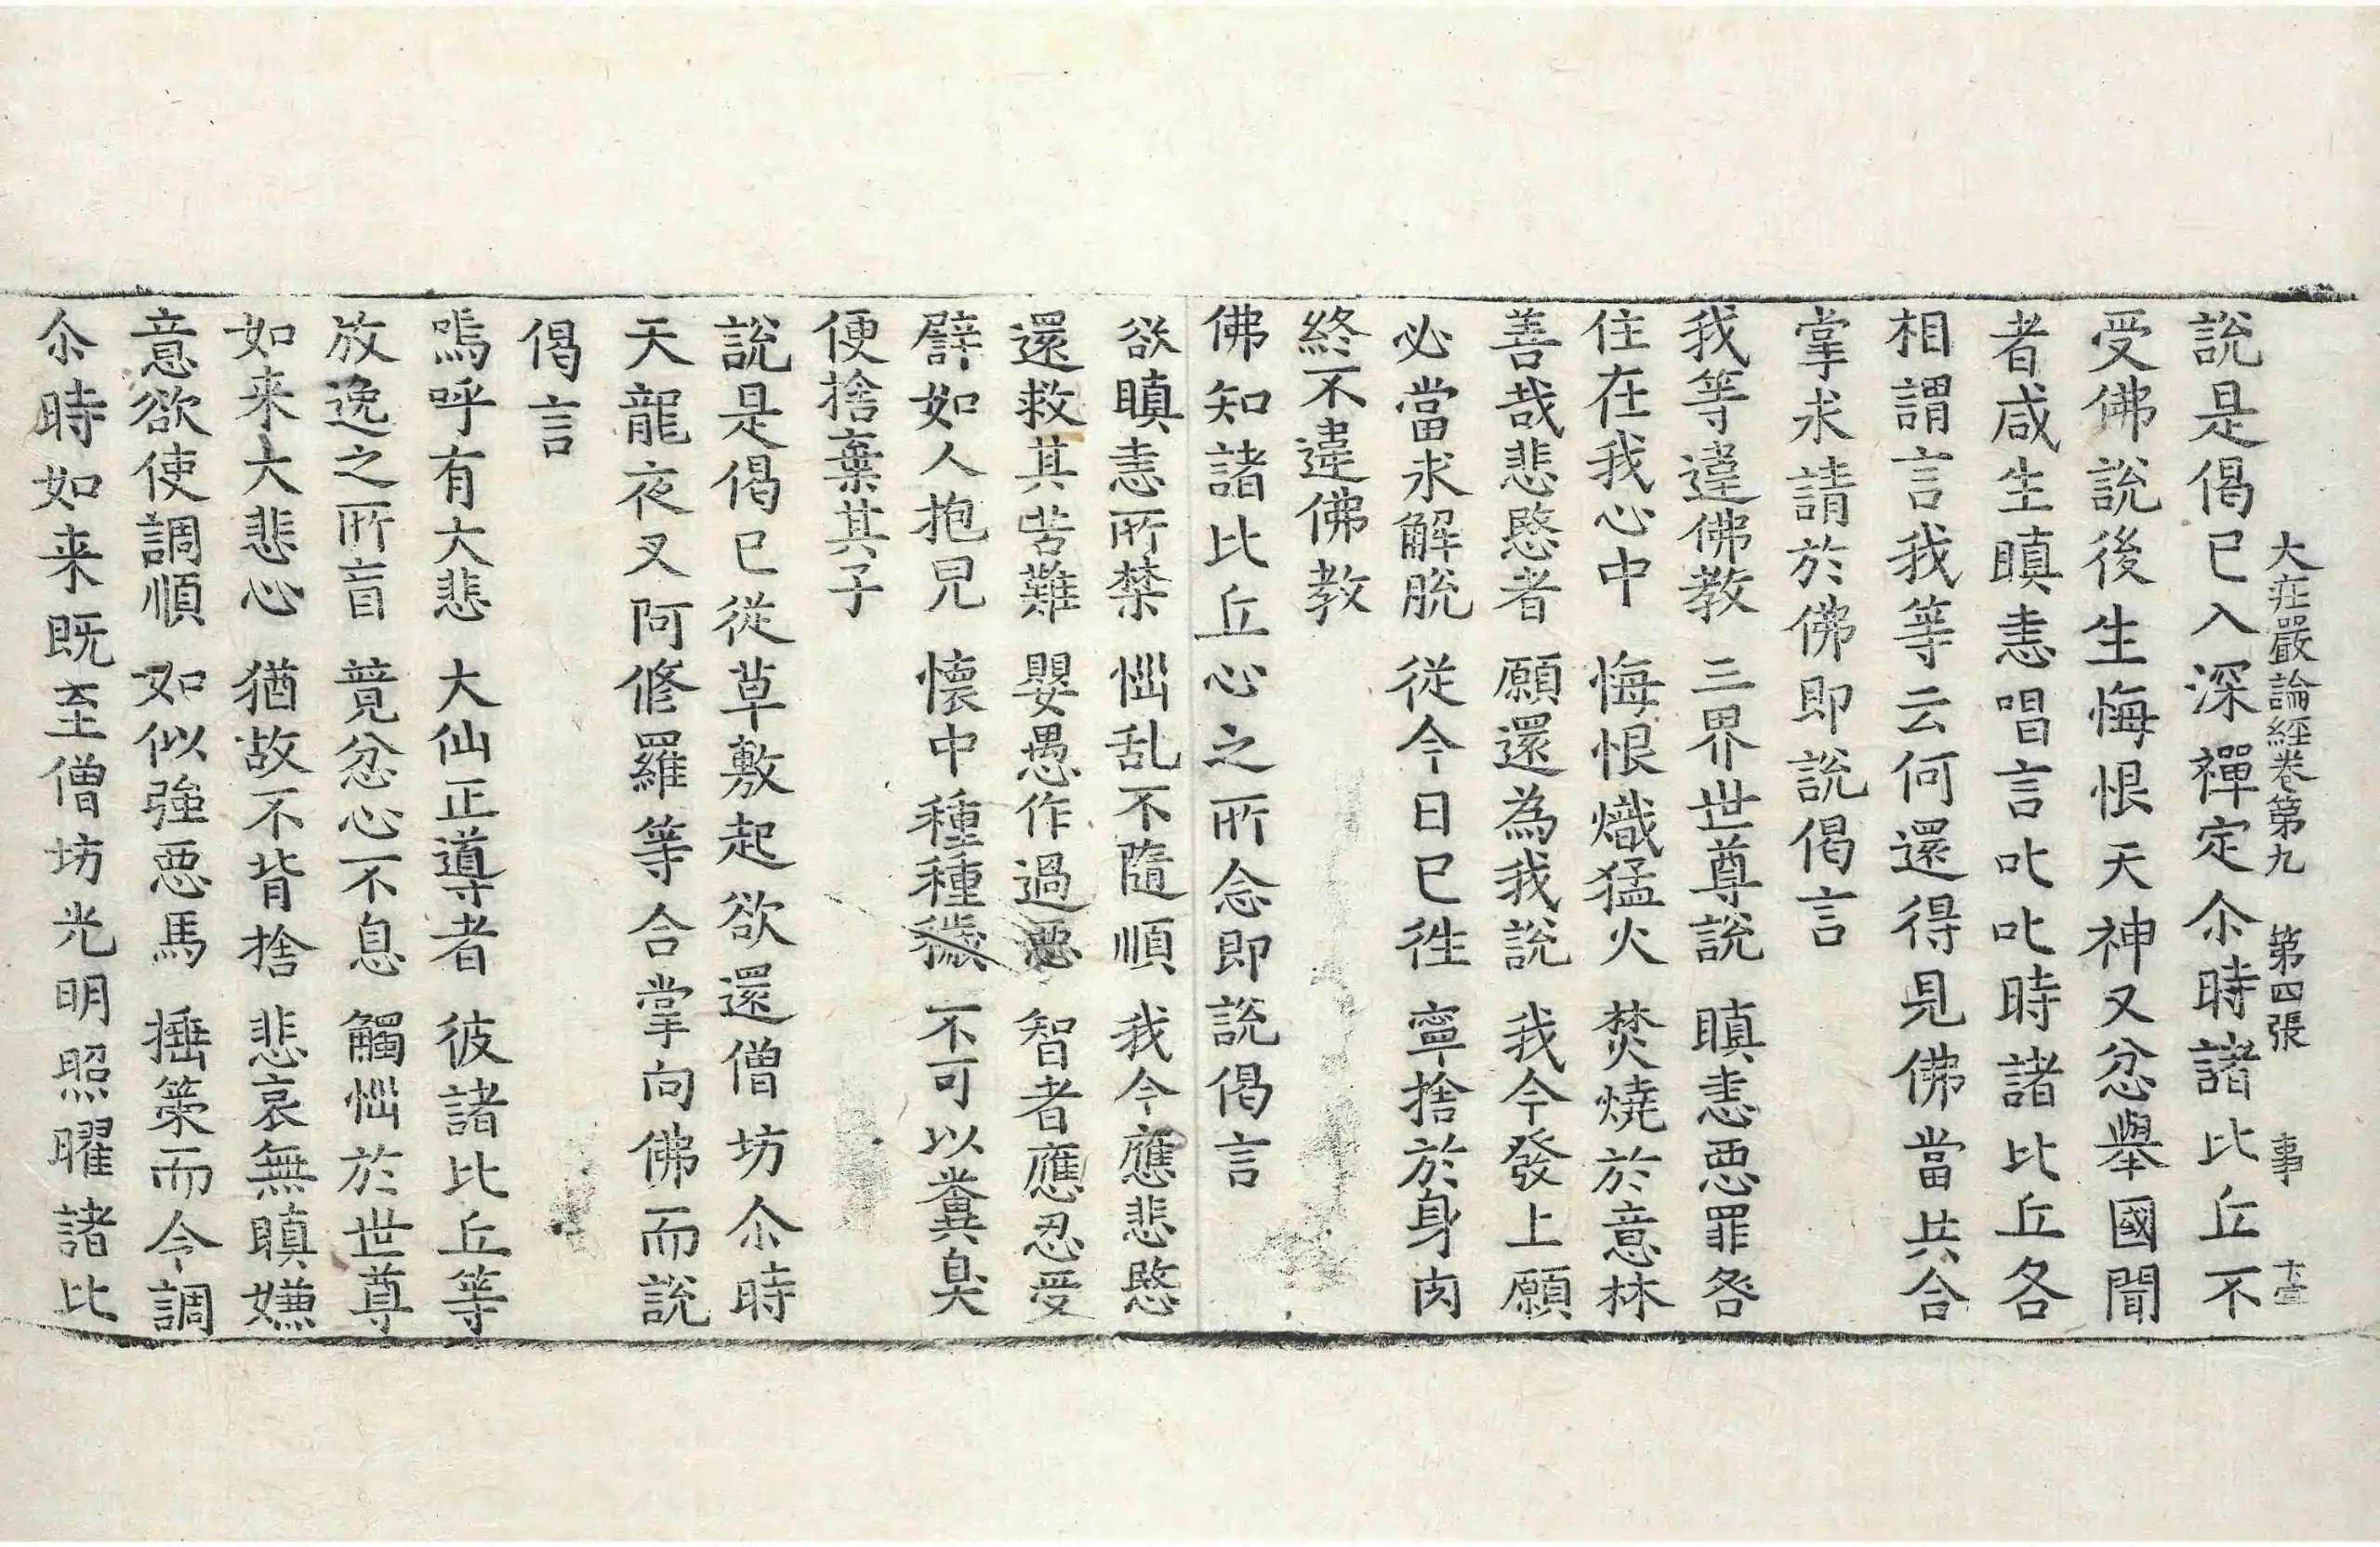 大莊嚴論經卷第九 第四張 事
說是偈已入深禪定尒時諸比丘不
受佛說後生悔恨天神又忿舉國聞
者咸生瞋恚唱言叱叱時諸比丘各
相謂言我等云何還得見佛當共合
掌求請於佛即說偈言
我等違佛教 三界世尊說 瞋恚惡罪咎
住在我心中 悔恨熾猛火 焚燒於意林
善哉悲愍者 願還為我說 我今發上願
必當求解脫 從今日已徃 寧捨於身肉
終不違佛教
佛知諸比丘心之所念即說偈言
欲瞋恚所禁 惱乱不隨順 我今應悲愍
還救其苦難 嬰愚作過惡 智者應忍受
譬如人抱兒 懷中種種穢 不可以糞臭
便捨棄其子
說是偈已從草敷起欲還僧坊尒時
天龍夜叉阿修羅等合掌向佛而說
偈言
嗚呼有大悲 大仙正導者 彼諸比丘等
放逸之所盲 竟忿心不息 觸惱於世尊
如来大悲心 猶故不背捨 悲哀無瞋嫌
意欲使調順 如似強惡馬 捶策而令調
尒時如来既至僧坊光明照曜諸比